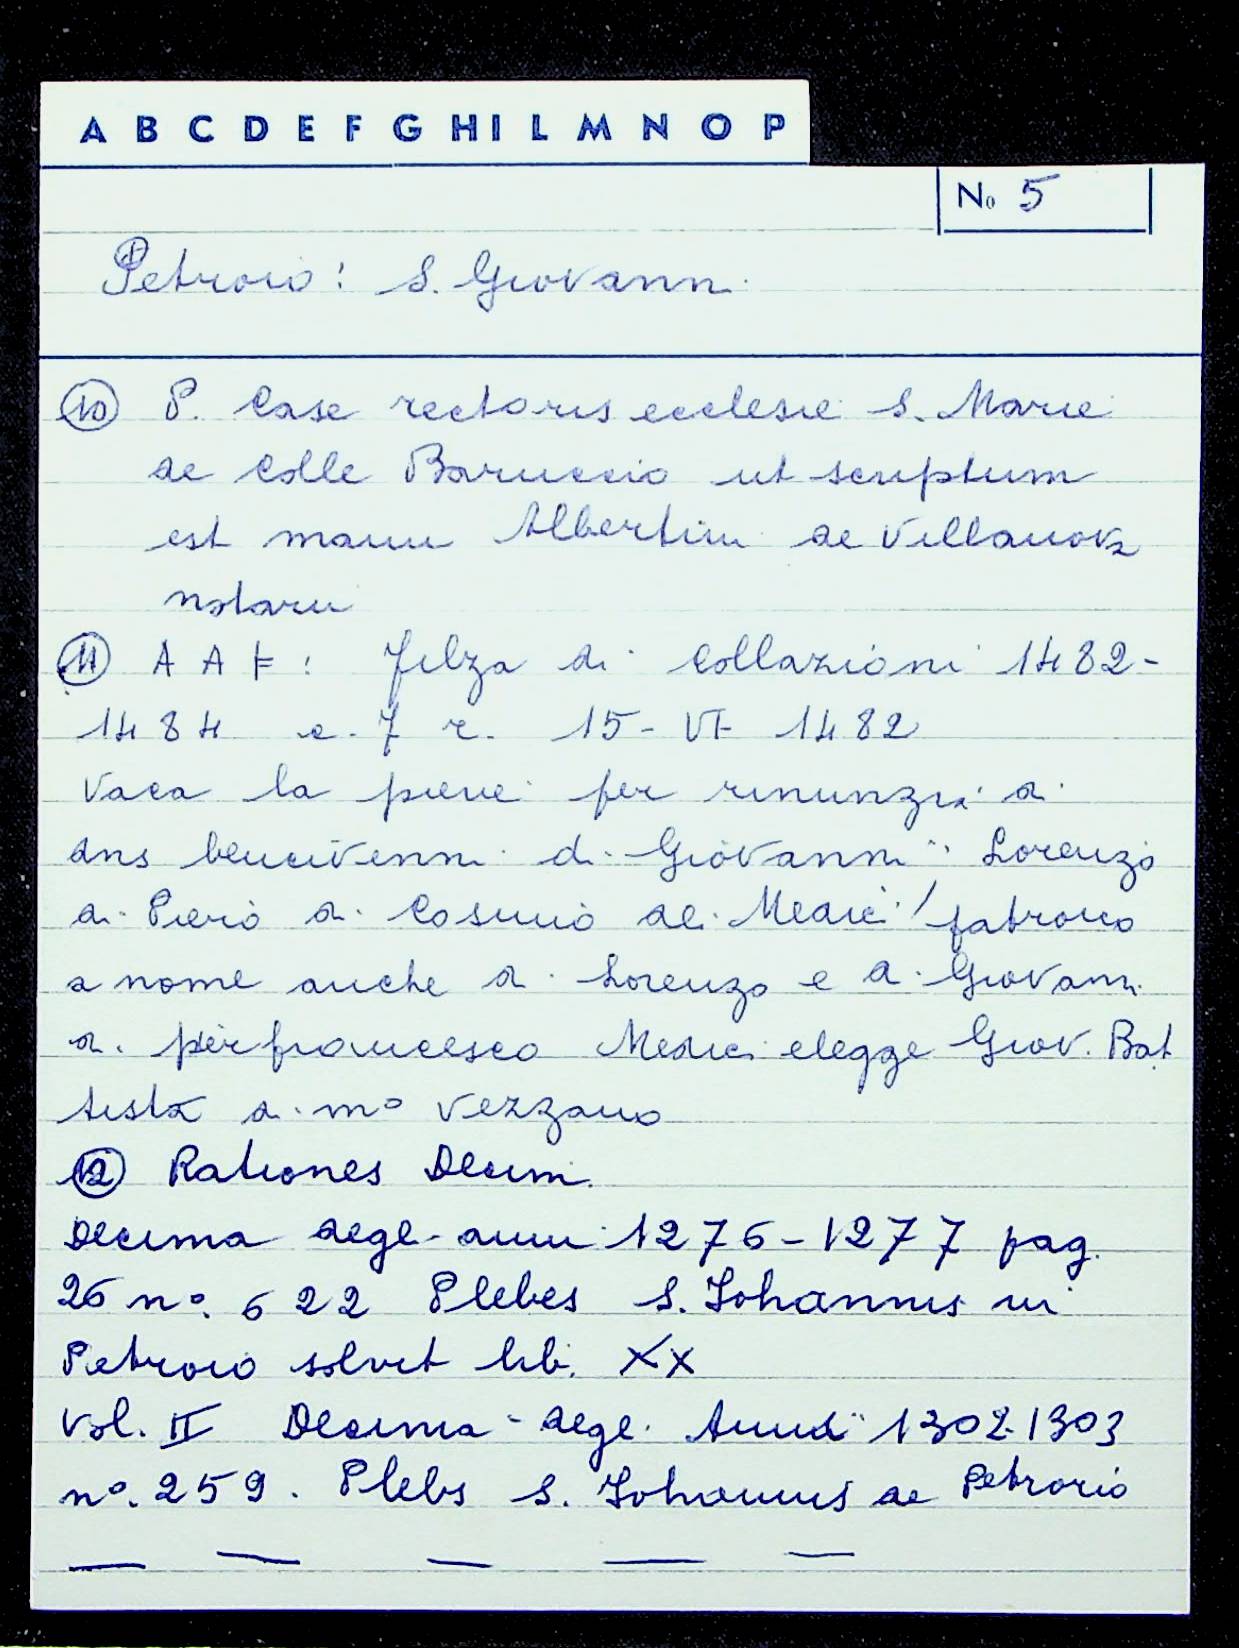 A B C D E F G H I L M N O P
No 5
Petroio: S. Giovanni
10 P. Case rectoris ecclesie S. Marie
de Colle Baruccio ut scriptum
est manu Albertini de Villanova
notarii
11 A A F: Filza di Collazioni 1482-
1484 c. 7 r. 15-VI 1482
Vaca la pieve per rinunzia di
Benvivenni di Giovanni Lorenzo
di Piero di Cosimo de Medici patrono
a nome anche di Lorenzo e di Giovanni
di pierfrancesco Medici elegge Giov. Bat
tista di mo Vezzano
12 Rationes Decim.
Decima degl. anni 1276-1277 pag.
26 no. 622 Plebes S. Iohannis in
Petroio solvit lib. XX
Vol. II Decima degl. Anni 1302-1303
no. 259. Plebs S. Iohannis de Petrorio